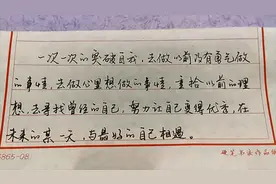 一次一次的突破自我，去做以前没有勇气做
的事情，去做心里想做的事情，重拾以前的理
想，去寻找曾经的自己，努力让自己变得优秀，在
未来的某一天，与最好的自己相遇。